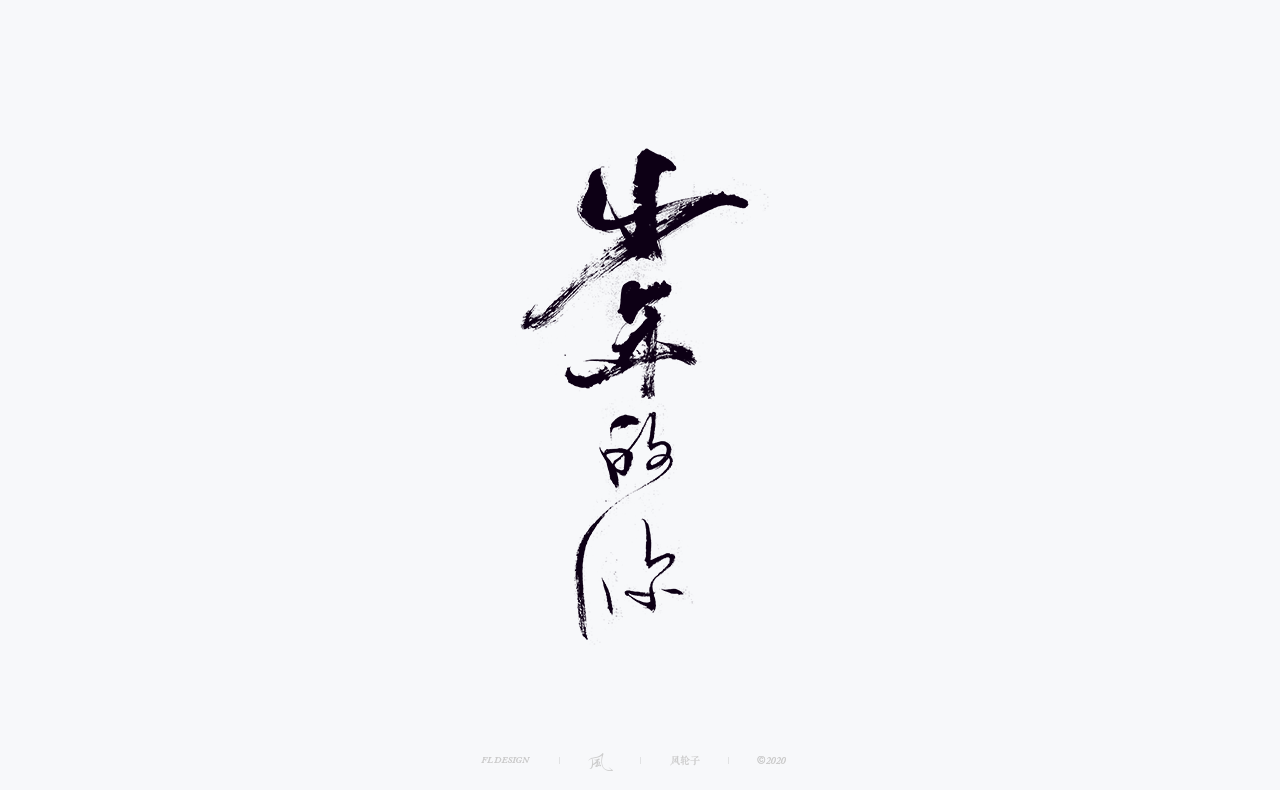 少年的你
FL.DESIGN 風 风轮子 ©2020